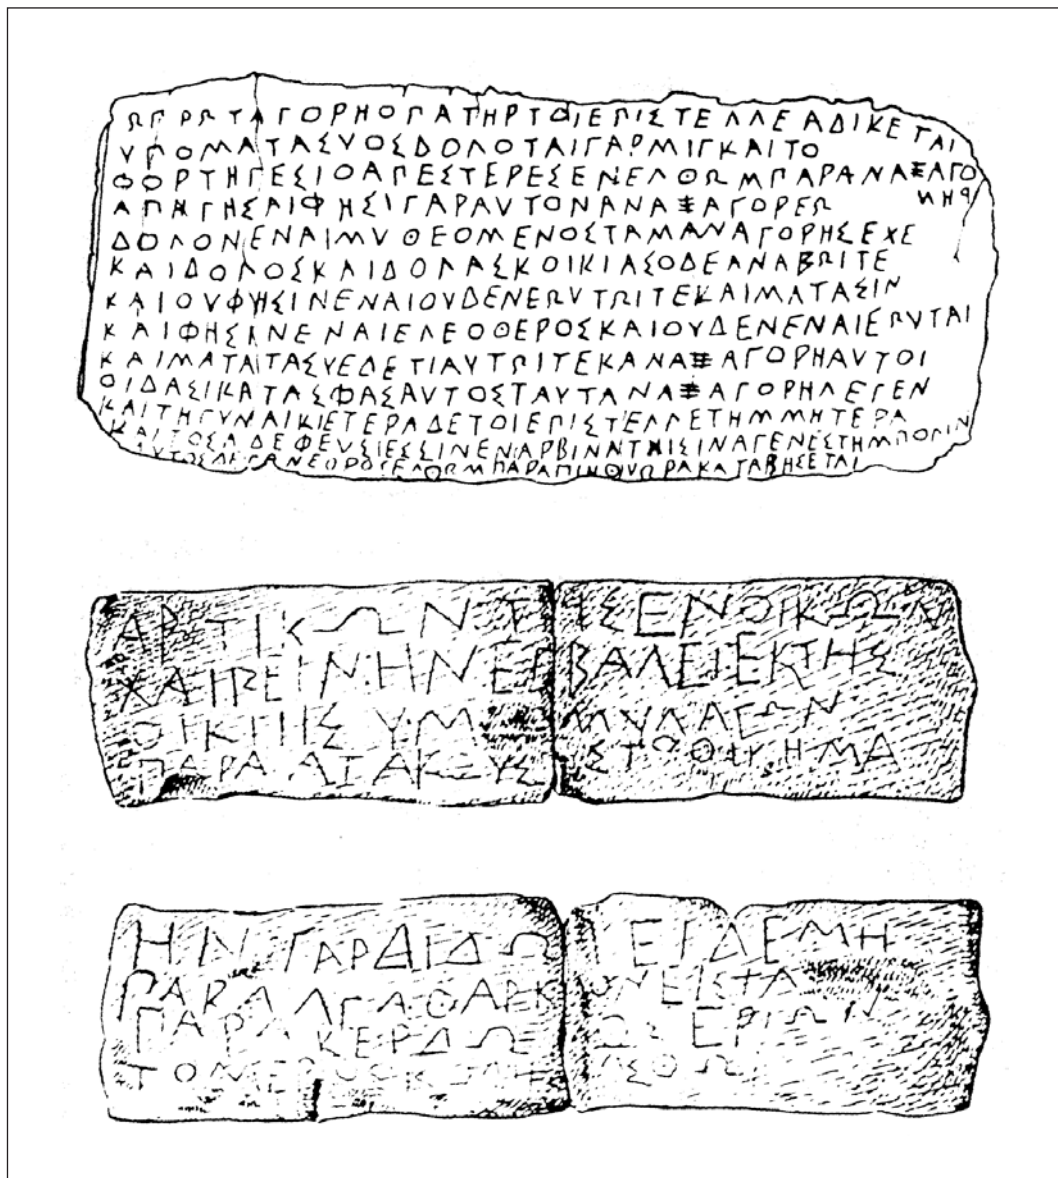 ΩΠΡΩΤΑΓΟΡΗΟΠΑΤΗΡΤΟΙΕΠΙΣΤΕΛΛΕΑΔΙΚΕΤΑΙ
ΥΠΟΜΑΤΑΣΥΟΣΔΟΛΟΤΑΙΓΑΡΜΙΓΚΑΙΤΟ
ΦΟΡΤΗΓΕΣΙΟΑΠΕΣΤΕΡΕΣΕΝΕΛΘΩΜΠΑΡΑΝΑΞΑΓΟ
ΡΗΝ
ΑΠΗΓΗΣΑΙΦΗΣΙΓΑΡΑΥΤΟΝΑΝΑΞΑΓΟΡΕΩ
ΔΟΛΟΝΕΝΑΙΜΥΘΕΟΜΕΝΟΣΤΑΜΑΝΑΓΟΡΗΣΕΧΕ
ΚΑΙΔΟΛΟΣΚΑΙΔΟΛΑΣΚΟΙΚΙΑΣΟΔΕΑΝΑΒΩΙΤΕ
ΚΑΙΟΥΦΗΣΙΝΕΝΑΙΟΥΔΕΝΕΩΥΤΩΙΤΕΚΑΙΜΑΤΑΣΙΝ
ΚΑΙΦΗΣΙΝΕΝΑΙΕΛΕΟΘΕΡΟΣΚΑΙΟΥΔΕΝΕΝΑΙΕΩΥΤΑΙ
ΚΑΙΜΑΤΑΤΑΣΥΕΔΕΤΙΑΥΤΩΙΤΕΚΑΝΑΞΑΓΟΡΗΑΥΤΟΙ
ΟΙΔΑΣΙΚΑΤΑΣΦΑΣΑΥΤΟΣΤΑΥΤΑΝΑΞΑΓΟΡΗΛΕΓΕΝ
ΚΑΙΤΗΓΥΝΑΙΚΙΕΤΕΡΑΔΕΤΟΙΕΠΙΣΤΕΛΛΕΤΗΜΜΗΤΕΡΑ
ΚΑΙΤΟΣΑΔΕΦΕΥΣΙΕΣΣΙΝΕΝΑΡΒΙΝΑΤΗΙΣΙΝΑΓΕΝΕΣΤΗΜΠΟΛΙΝ
ΕΛΘΩΜΠΑΡΑΜΙΝΘΥΩΡΑΚΑΤΑΒΗΣΕΤΑΙ
ΑΡΤΙΚΩΝΤΙΣΕΝΟΙΚΩΝ
ΧΑΙΡΕΙΝΗΝΕΓΒΑΛΕΙΕΚΤΗΣ
ΟΙΚΙΗΣΥΜ ΜΥΛΛΓΩΝ
ΠΑΡΑΑΤΑΚΟΥΣ ΣΤΟΟΙΚΗΜΑ
ΗΝΓΑΡΔΙΔΩΙΕΙΔΕΜΗ
ΠΑΡΑΑΓΑΘΑΡΚΟΝΕΙΣΤΑ
ΠΑΡΑΚΕΡΔΩΝΟΣΕΡΙΩΝ